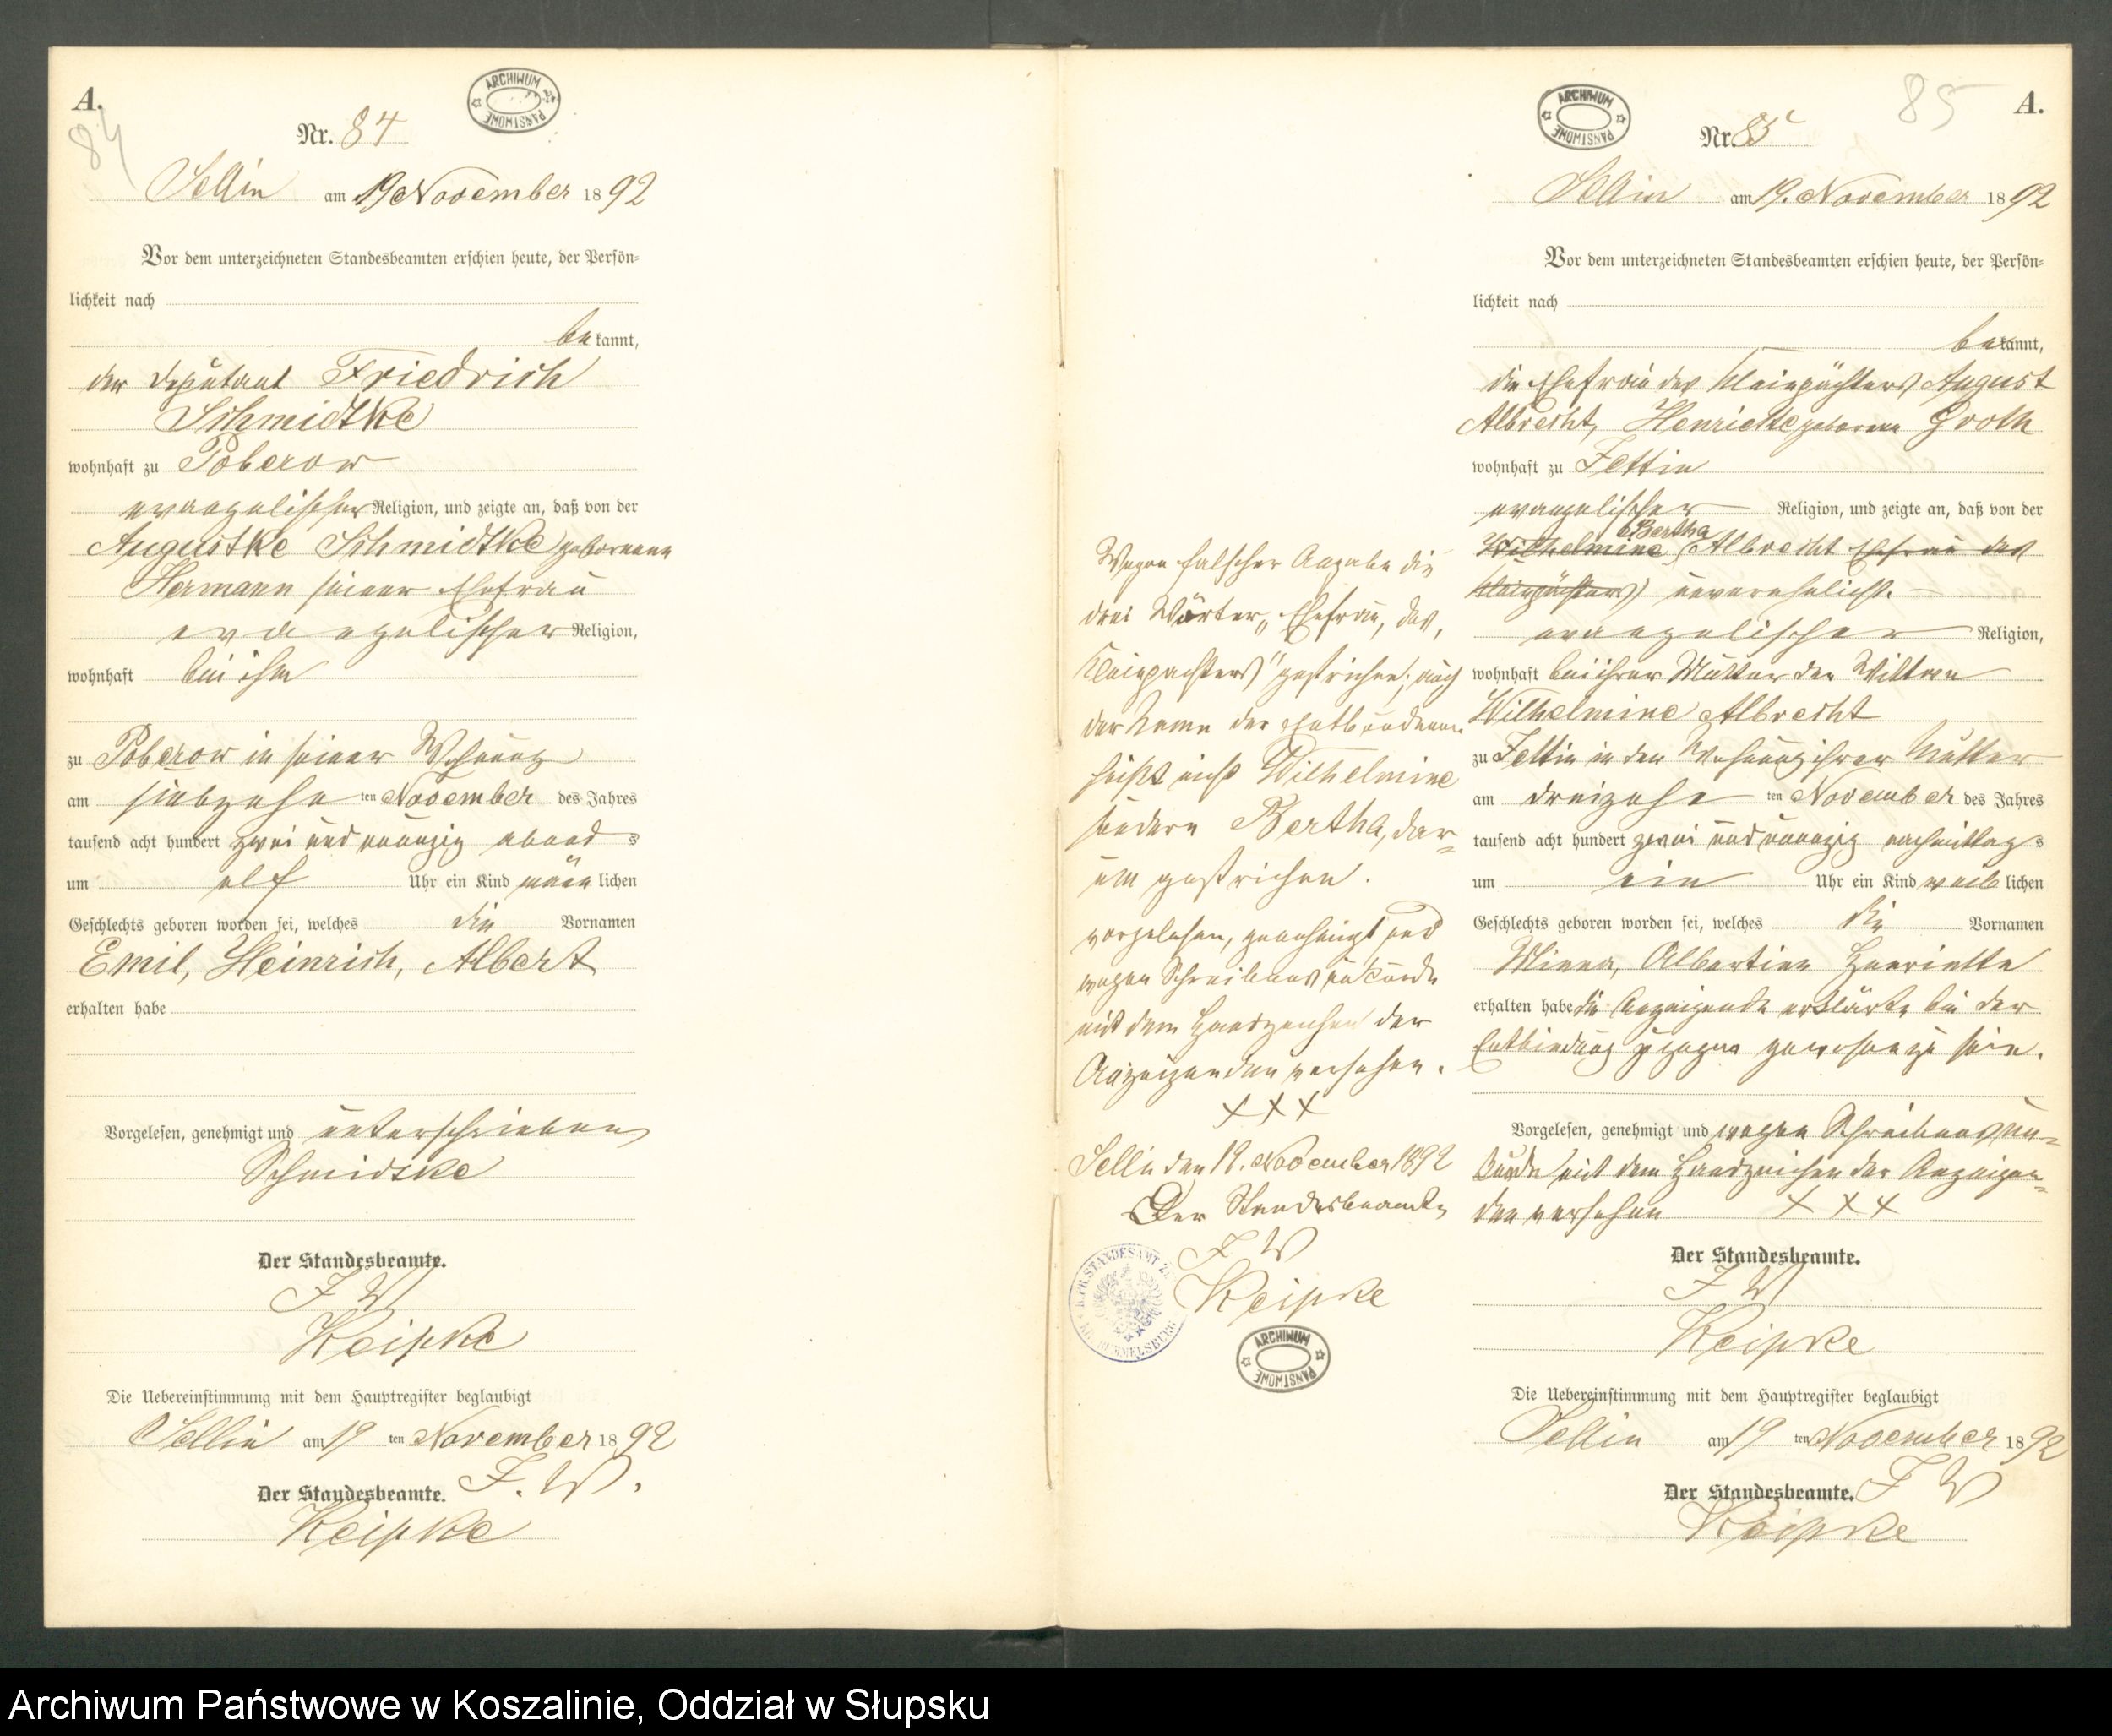 A.
84
ARCHIWUM PAŃSTWOWE
Nr. 84
Sellin am 19 November 1892
Vor dem unterzeichneten Standesbeamten erschien heute, der Persön-
lichkeit nach
be kannt,
der Deputant Friedrich
Schmidtke
wohnhaft zu Poberow
evangelischer Religion, und zeigte an, daß von der
Augustke Schmidtke geborenen
Hermann seiner Ehefrau
evangelischer Religion,
wohnhaft bei ihm
zu Poberow in seiner Wohnung
am siebzehn ten November des Jahres
tausend acht hundert zwei und neunzig abend s
um elf Uhr ein Kind männ lichen
Geschlechts geboren worden sei, welches die Vornamen
Emil, Heinrich, Albert
erhalten habe
Vorgelesen, genehmigt und unterschrieben
Schmidtke
Der Standesbeamte.
F W
Keipke
Die Uebereinstimmung mit dem Hauptregister beglaubigt
Sellin am 19 ten November 1892
Der Standesbeamte. F. W.
Keipke
Wegen falscher Angabe die
drei Wörter „Ehefrau, des,
Kleinpachters" gestrichen; auch
der Name der Entbundenen
heißt nicht Wilhelmine
sondern Bertha, dar-
um gestrichen.
vorgelesen, genehmigt und
wegen Schreibensunkunde
mit dem Handzeichen der
Anzeigenden versehen.
+++
Sellin den 19. November 1892
Der Standesbeamte
F W
Keipke
K. PR. STANDESAMT ZU
KR. RUMMELSBURG
ARCHIWUM PAŃSTWOWE
ARCHIWUM PAŃSTWOWE
85
A.
Nr. 85
Sellin am 19. November 1892
Vor dem unterzeichneten Standesbeamten erschien heute, der Persön-
lichkeit nach
be kannt,
die Ehefrau des Kleinpächters August
Albrecht, Henriette geborene Groth
wohnhaft zu Zettin
evangelischer Religion, und zeigte an, daß von der
Bertha
Wilhelmine Albrecht Ehefrau des
Kleinpächters unverehelicht.
evangelischer Religion,
wohnhaft bei ihrer Mutter der Wittwe
Wilhelmine Albrecht
zu Zettin in der Wohnung ihrer Mutter
am dreizehn ten November des Jahres
tausend acht hundert zwei und neunzig nachmittag s
um ein Uhr ein Kind weib lichen
Geschlechts geboren worden sei, welches die Vornamen
Minna, Albertine Henriette
erhalten habe die Anzeigende erklärte bei der
Entbindung zugegen gewesen zu sein.
Vorgelesen, genehmigt und wegen Schreibensun-
kunde mit dem Handzeichen der Anzeigen-
den versehen +++
Der Standesbeamte.
F W
Keipke
Die Uebereinstimmung mit dem Hauptregister beglaubigt
Sellin am 19 ten November 1892
Der Standesbeamte. F W
Keipke
Archiwum Państwowe w Koszalinie, Oddział w Słupsku